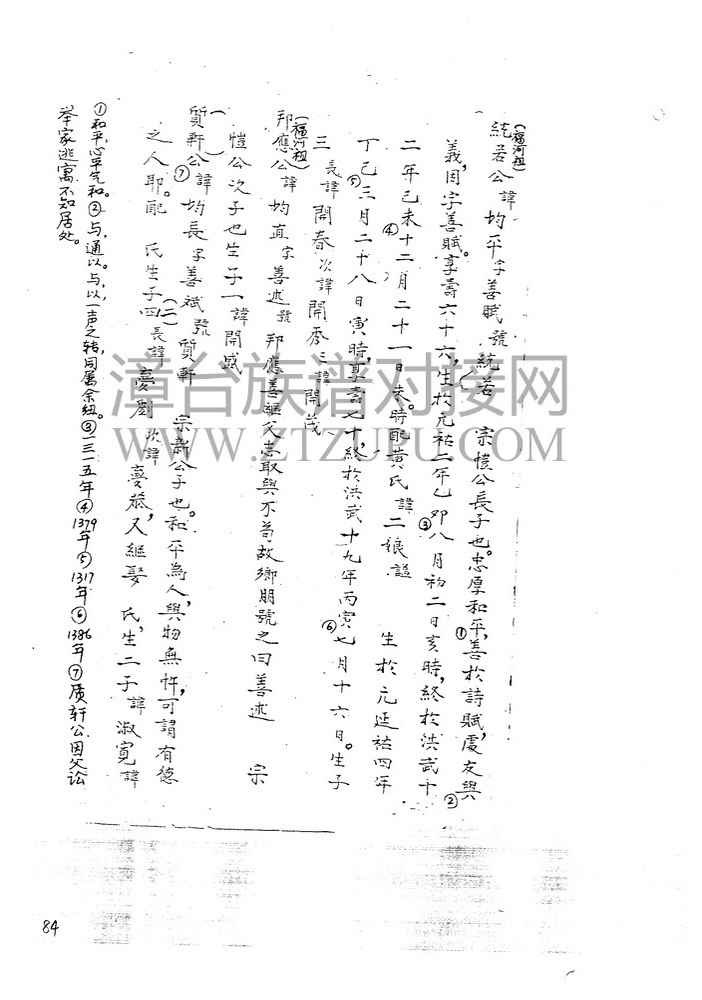 (福河祖)
統若公諱均平字善賦號統若 宗愷公長子也。忠厚和平,①善於詩賦,處友與②
義,因字善賦。享壽六十六,生於元祐二年乙卯③八月初二日亥時,終於洪武十
二年己未④十二月二十一日未時。配黃氏諱二娘謚 生於元延祐四年
丁巳⑤三月二十八日寅時,享壽七十,終於洪武十九年丙寅⑥七月十六日。生子
三 長諱開春次諱開秀三諱開茂
(福河祖)
邦應公諱均直字善述號邦應善繼父志取與不苟故鄉朋號之曰善述 宗
愷公次子也生子一諱開盛
(一)
質軒公⑦諱均長字善斌號質軒 宗新公子也。和平為人,與物無忤,可謂有德
(二)
之人耶。配 氏生子四長諱憂 次諱憂恭,又繼娶 氏,生二子諱淑寬諱
①和平,心平气和。②与,通以。与、以,一声之转,同属余纽。③一三一五年④1379年⑤1317年⑥1386年⑦质轩公因父讼
举家逃寓不知居处。
漳台族谱对接网
WWW.ZTZUPU.COM
84